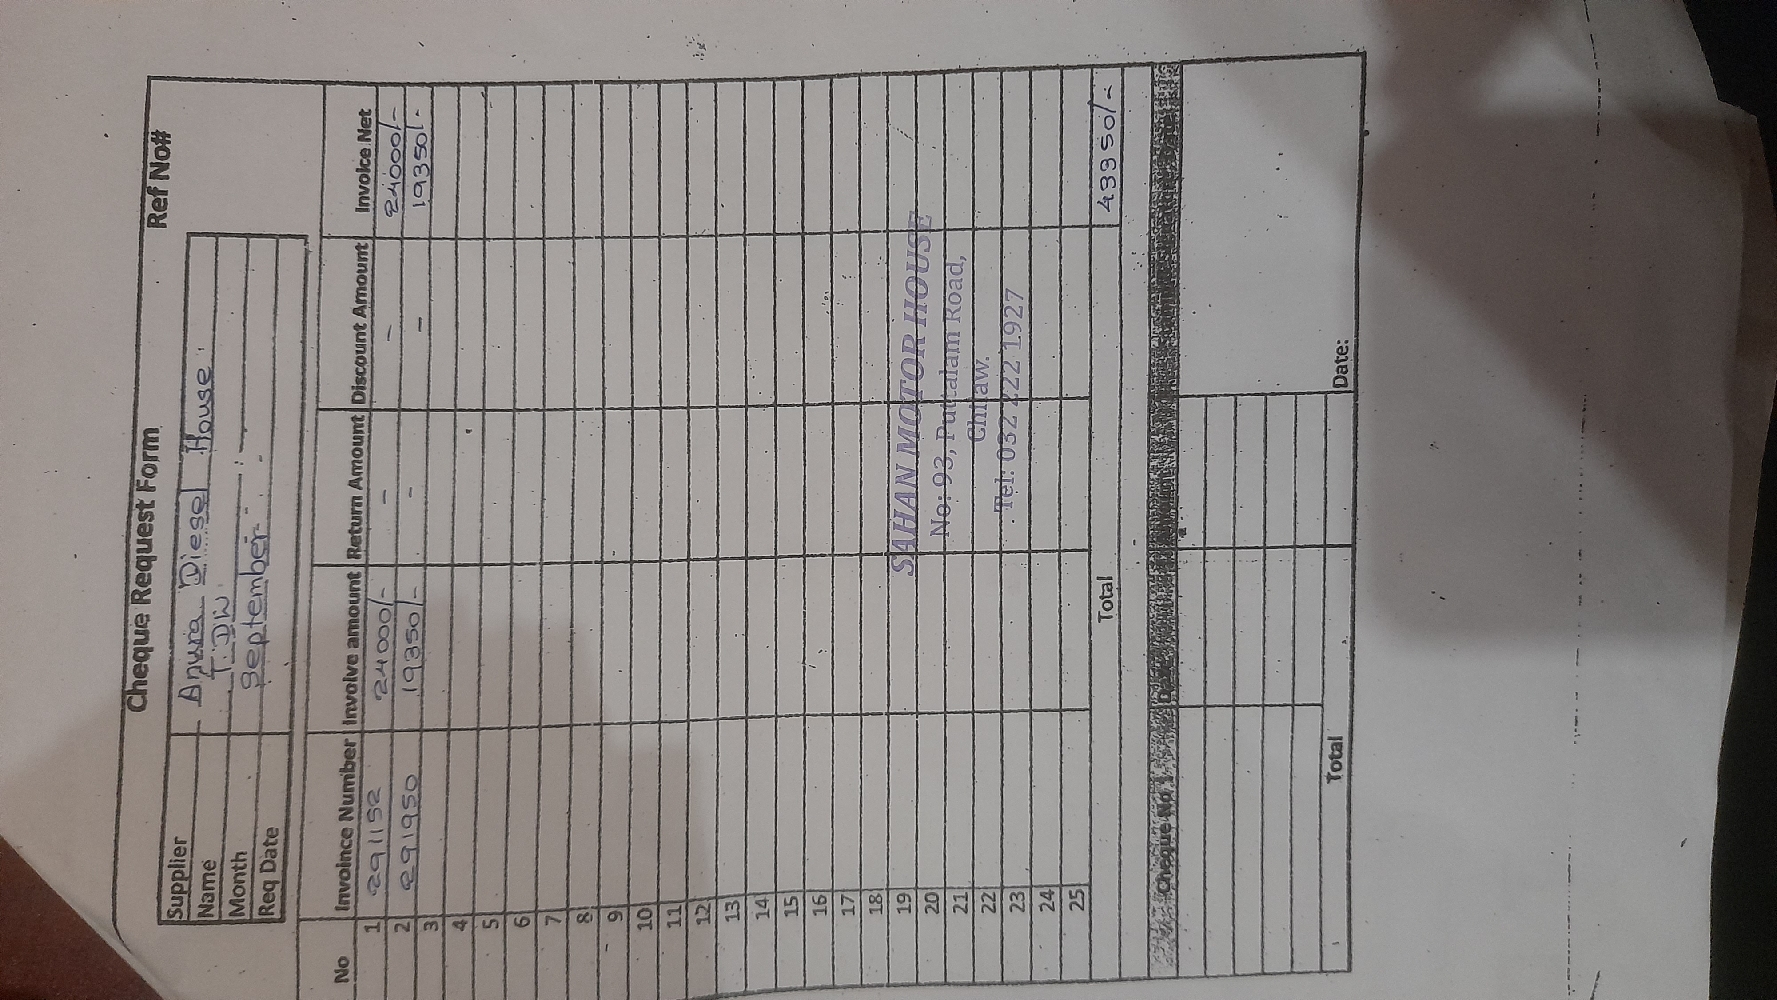 Cheque Request Form
Ref No#
Supplier Anura Diesel House
Name T.DW
Month September
Req Date
No Invoince Number Involve amount Return Amount Discount Amount Invoice Net
1 291152 24000/- - - 24000/-
2 291950 19350/- - - 19350/-
3
4
5
6
7
8
9
10
11
12
13
14
15
16
17
18
19
20
21
22
23
24
25
SAHAN MOTOR HOUSE
No: 93, Puttalam Road,
Chilaw.
Tel: 032 222 1927
Total 43350/-
Cheque No
Total
Date: